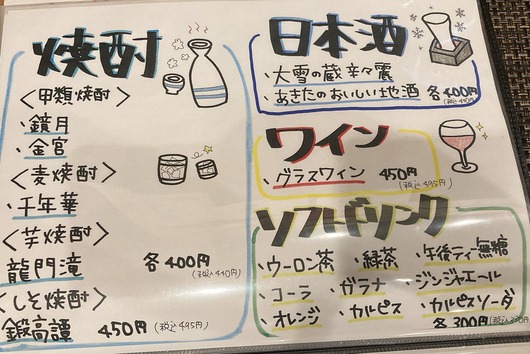 焼酎
<甲類焼酎>
・鏡月
・金宮
<麦焼酎>
・千年華
<芋焼酎>
龍門滝
各400円
(税込440円)
<しそ焼酎>
鍛高譚 450円 (税込495円)
日本酒
・大雪の蔵 辛々麗
・あきたのおいしい地酒 各400円
(税込440円)
ワイン
・グラスワイン 450円
(税込495円)
ソフトドリンク
・ウーロン茶 ・緑茶 ・午後ティー無糖
・コーラ ・ガラナ ・ジンジャエール
・オレンジ ・カルピス ・カルピスソーダ
各300円(税込330円)